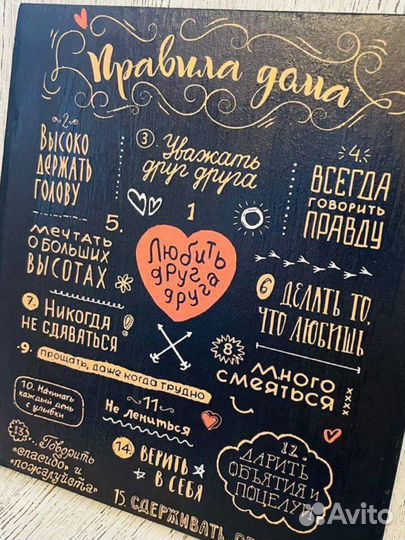 Правила дома
-2-
Высоко
держать
голову
3
Уважать
друг друга
4.
Всегда
говорить
правду
5.
Мечтать
о больших
высотах
1
Любить
друг
друга
6
Делать то,
что любишь
7.
Никогда
не сдаваться
8
Много
смеяться
-9-
прощать, даже когда трудно
10. Начинать
каждый день
с улыбки
-11-
Не лениться
12.
Дарить
объятия и
поцелуи
13
... Говорить
«спасибо» и
«пожалуйста»
14.
Верить
в себя
15. Сдерживать
Avito